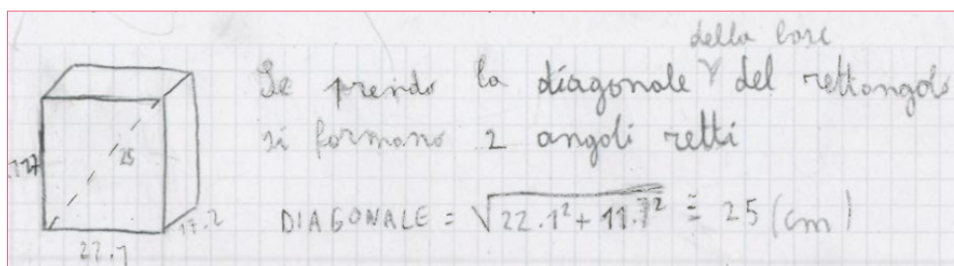 della base
Se prendo la diagonale del rettangolo
si formano 2 angoli retti
25
DIAGONALE = √22.1² + 11.7² ≅ 25 (cm)
22.1